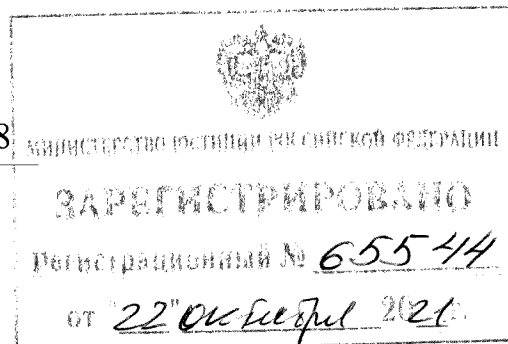 8
МИНИСТЕРСТВО ЮСТИЦИИ РОССИЙСКОЙ ФЕДЕРАЦИИ
ЗАРЕГИСТРИРОВАНО
Регистрационный № 65544
от "22" октября 2021 г.